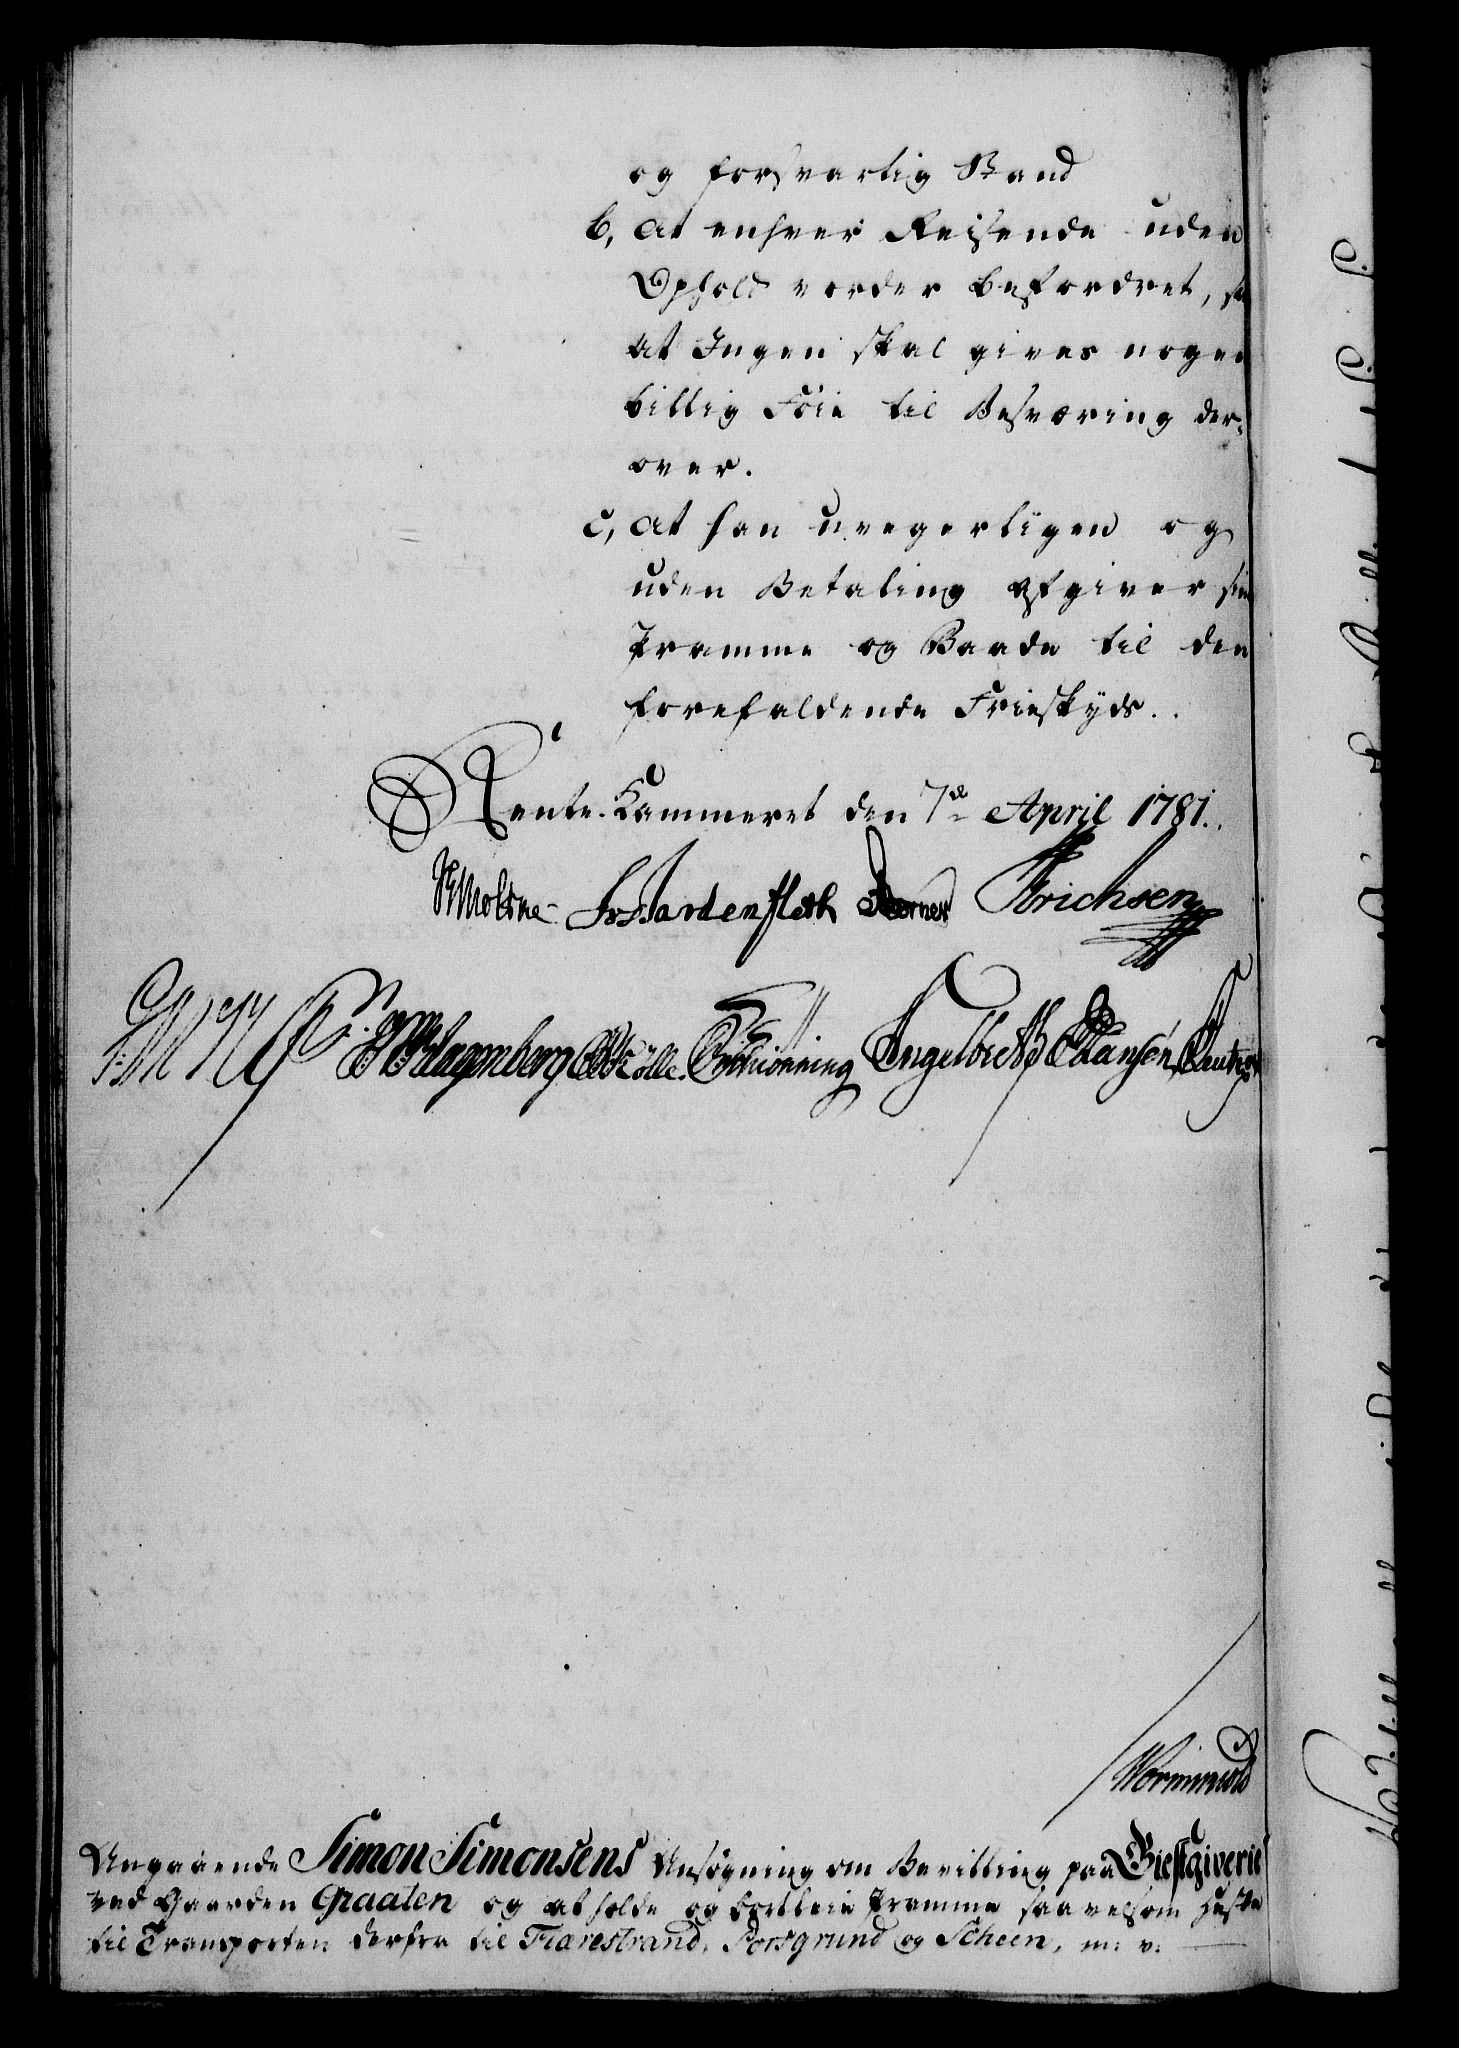 og forsvarlig Stand
b, at enhver Reisende uden
Ophold vorder befordret, saa
at Ingen skal gives nogen
billig Föie til Besværing der-
over.
c, at han uvegerligen og
uden Betaling afgiver sine
Pramme og Baade til den
forefaldende Frieskyds..
Rente-Kammeret den 7de April 1781.
Moltke Hardenfleth Berner Erichsen
Klagenberg Mölle Engelbreth EHansen
Wormskiold
Angaaende Simon Simonsens Ansögning om Bevilling paa Giestgiverie
ved Gaarden Graaten og at holde og bortleie Pramme saavelsom Heste
til Transporten derfra til Fiærestrand, Porsgrund og Scheen, m: v: